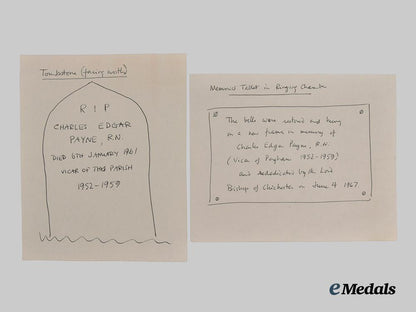 Tombstone (facing north)
R I P
CHARLES EDGAR
PAYNE, R.N.
DIED 6TH JANUARY 1961
VICAR OF THIS PARISH
1952-1959
Memorial Tablet in Ringing Chamber
The bells were restored and hung
on a new frame in memory of
Charles Edgar Payne, R.N.
(Vicar of Pagham 1952-1959)
and rededicated by the Lord
Bishop of Chichester on June 4 1967
eMedals